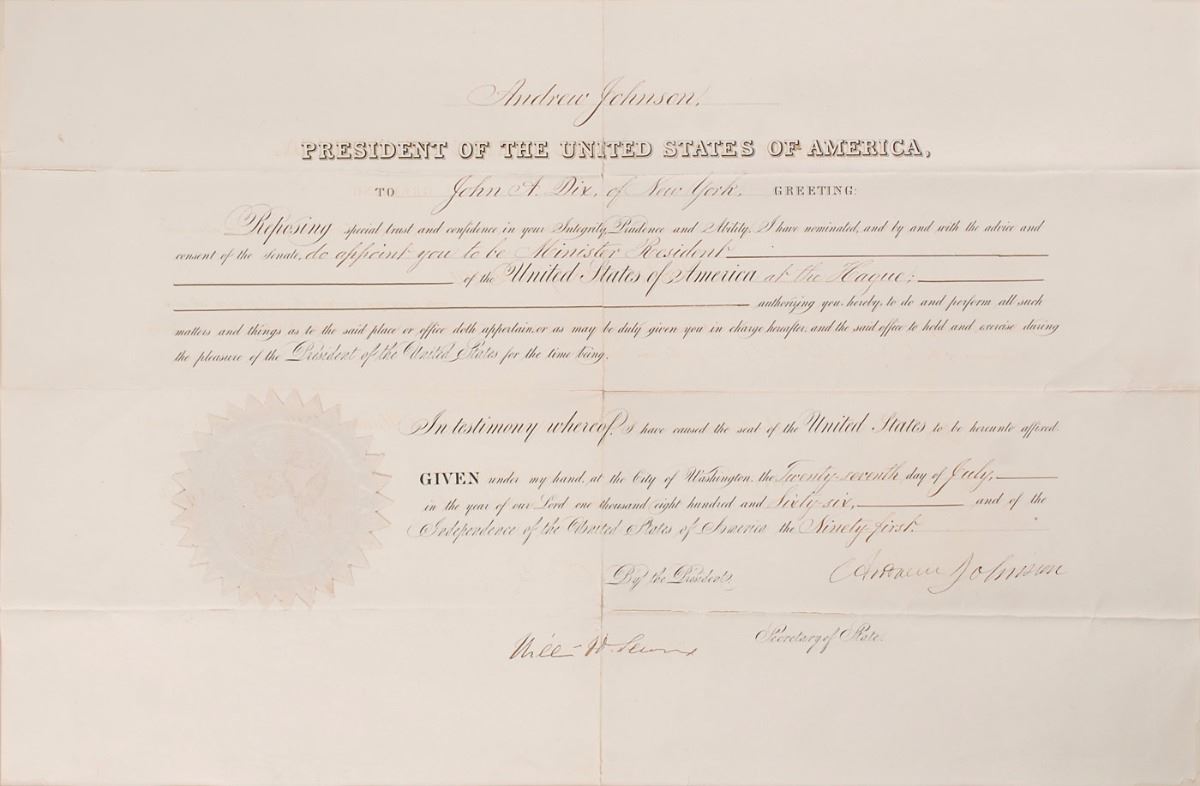 Andrew Johnson.
PRESIDENT OF THE UNITED STATES OF AMERICA,
TO John A. Dix, of New York, GREETING:
Reposing special trust and confidence in your Integrity, Prudence and Ability, I have nominated, and by and with the advice and
consent of the Senate, do appoint you to be Minister Resident
of the United States of America at the Hague;
authorizing you, hereby, to do and perform all such
matters and things as to the said place or office doth appertain, or as may be duly given you in charge hereafter, and the said office to hold and exercise during
the pleasure of the President of the United States for the time being.
In testimony whereof, I have caused the seal of the United States to be hereunto affixed.
GIVEN under my hand, at the City of Washington, the Twenty-seventh day of July,
in the year of our Lord one thousand eight hundred and Sixty-six, and of the
Independence of the United States of America the Ninety-first.
By the President, Andrew Johnson
Secretary of State.
Willm H. Seward